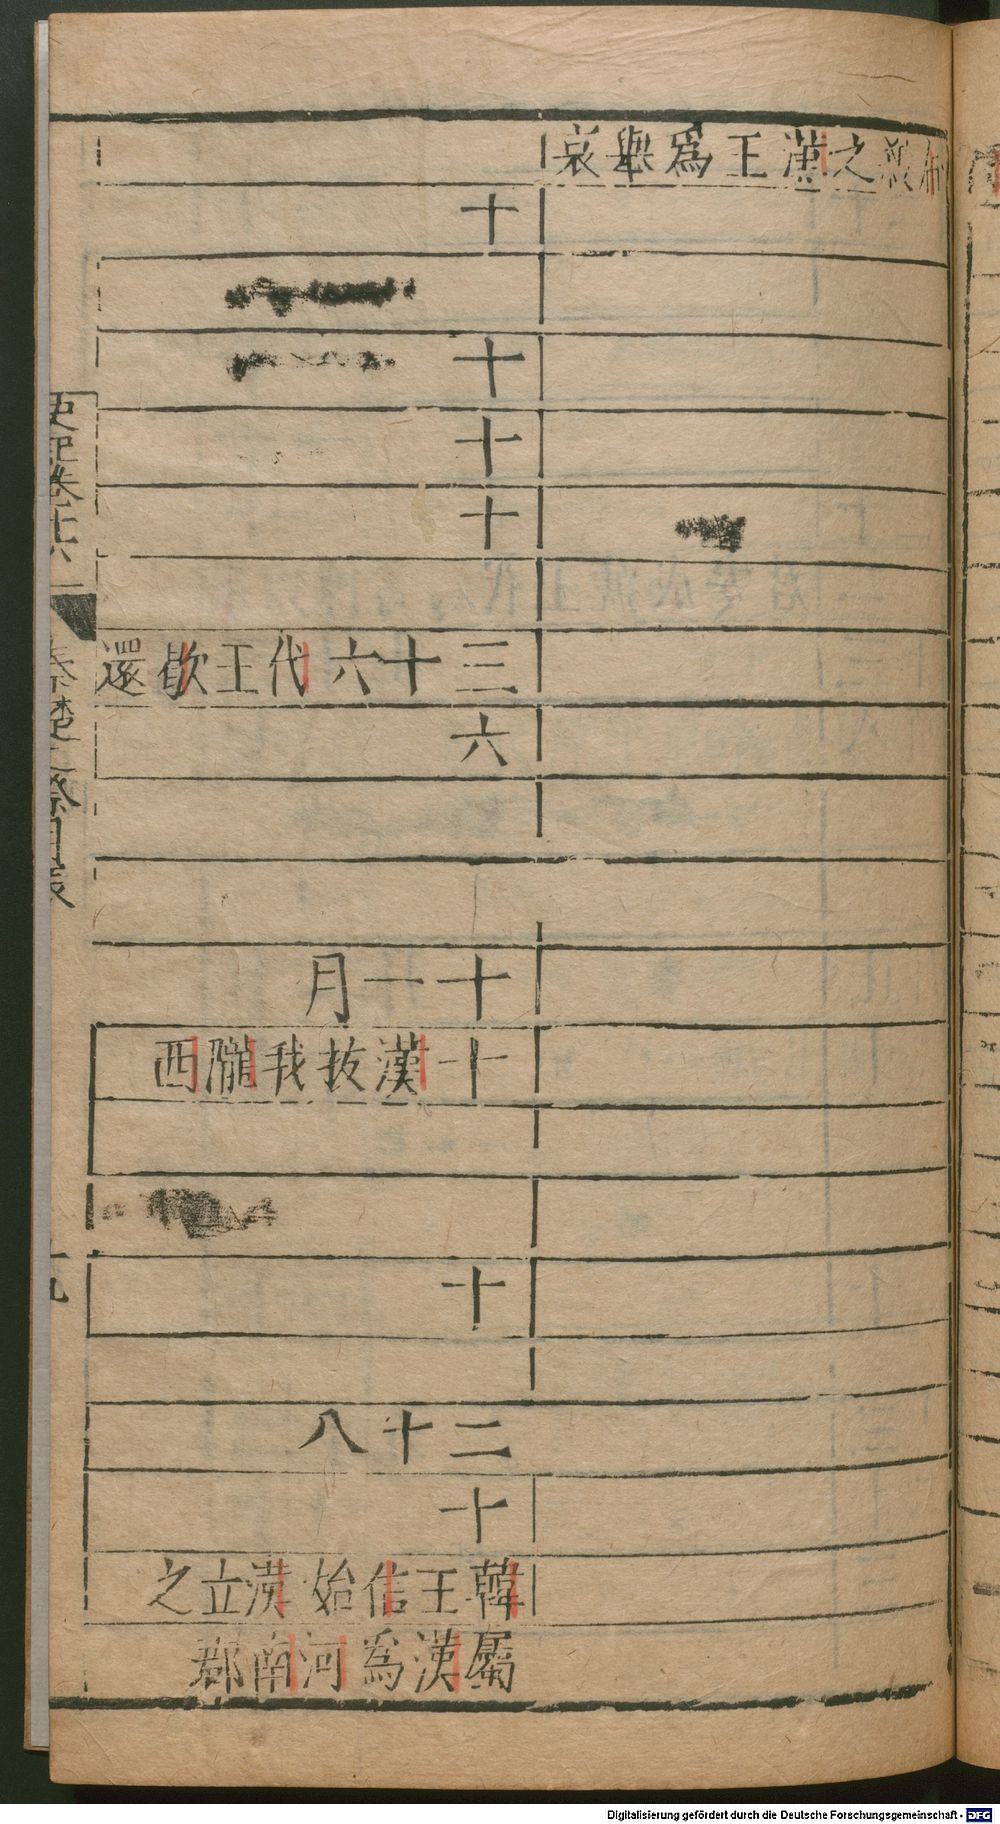 之漢王爲舉哀
十
十
十
十
三十六代王歇還
六
十一月
十漢拔我隴西
十
二十八
十
韓王信始漢立之
屬漢爲河南郡
史記卷十六
秦楚之際月表
十九
Digitalisierung gefördert durch die Deutsche Forschungsgemeinschaft - DFG